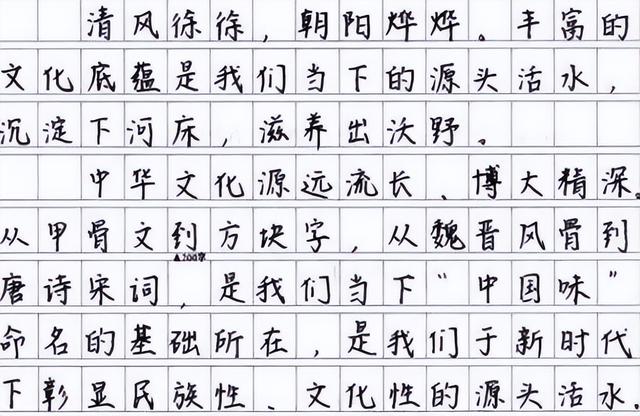 清风徐徐，朝阳烨烨。丰富的
文化底蕴是我们当下的源头活水，
沉淀下河床，滋养出沃野。
中华文化源远流长、博大精深。
从甲骨文到方块字，从魏晋风骨到
▲200字
唐诗宋词，是我们当下“中国味”
命名的基础所在，是我们于新时代
下彰显民族性、文化性的源头活水。